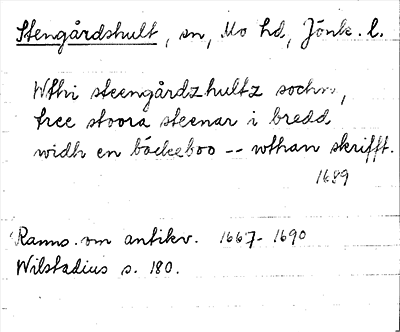 Stengårdshult, sn, Mo hd, Jönk. l.
Wthi steengårdzhultz sochn,
tree stoora steenar i bredd
widh en bäckeboo -- wthan skrifft.
1689
Ranns. om antikv. 1667-1690
Wilstadius s. 180.